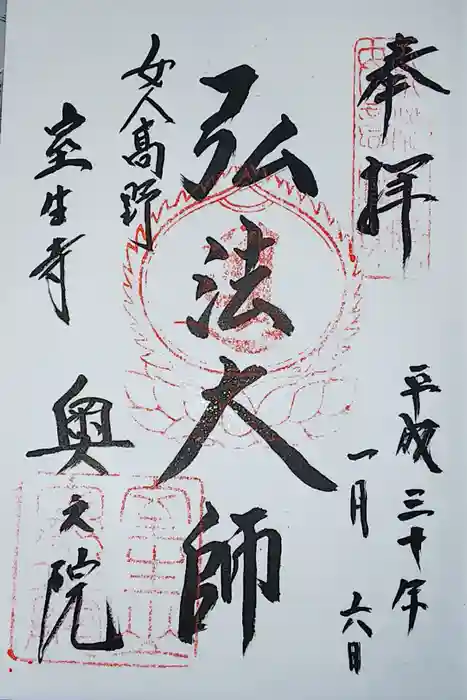 奉拝
平成三十年
一月 六日
弘法大師
女人高野
室生寺
奥之院